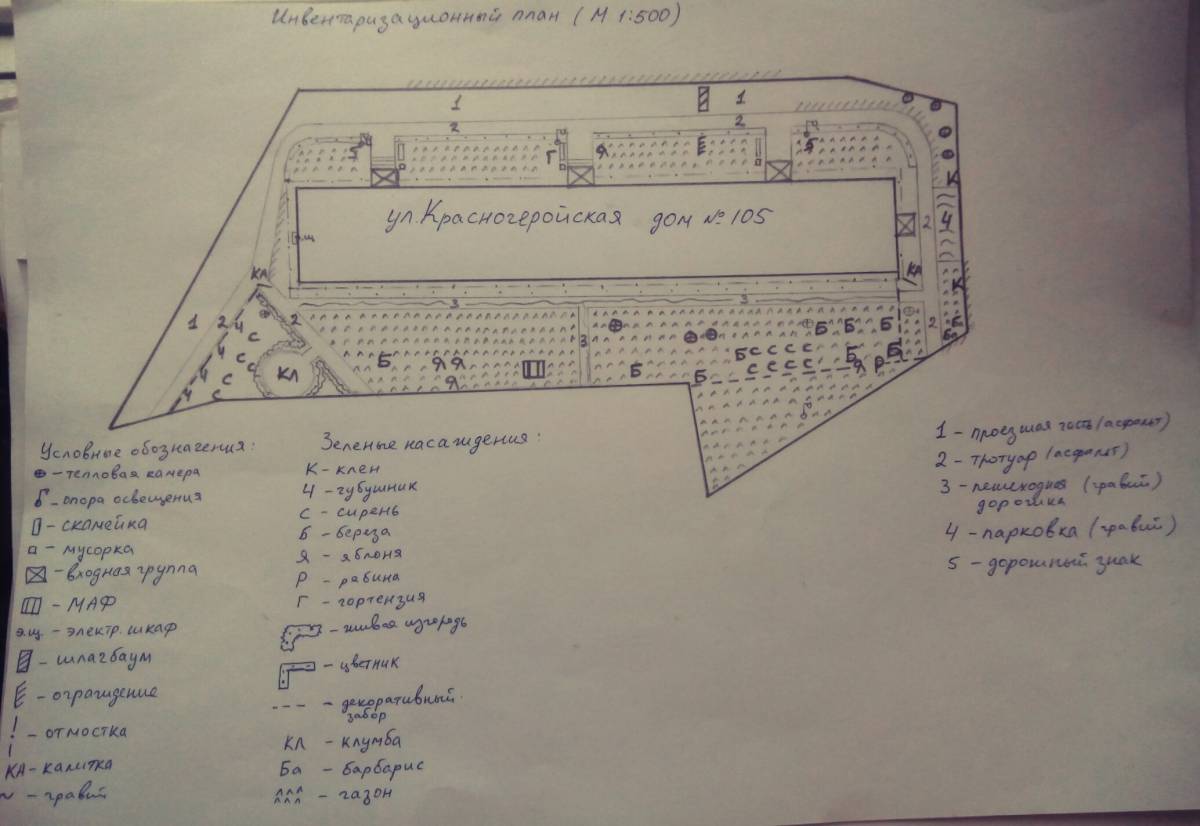 Инвентаризационный план ( М 1:500)
1
1
2
2
5
Г
Я
К
ул. Красногеройская дом № 105
2
Ч
э.щ
КА
КА
К
3
3
1 2 Ч
2
3
2
С
Б Б Б
Ч
С
Б С С С С
Б
Б
Б
Б
Ч
С
КЛ
Б
Я Я
С С С С
Я Р
Ч
С
Я
Б
Б
Условные обозначения:
- тепловая камера
- опора освещения
- скамейка
- мусорка
- входная группа
- МАФ
э.щ. - электр. шкаф
- шлагбаум
- ограждение
- отмостка
КА - калитка
~ - гравий
Зеленые насаждения:
К - клен
Ч - чубушник
С - сирень
Б - береза
Я - яблоня
Р - рябина
Г - гортензия
- живая изгородь
- цветник
--- - декоративный
забор
КЛ - клумба
Ба - барбарис
- газон
1 - проезжая часть (асфальт)
2 - тротуар (асфальт)
3 - пешеходная (гравий)
дорожка
4 - парковка (гравий)
5 - дорожный знак